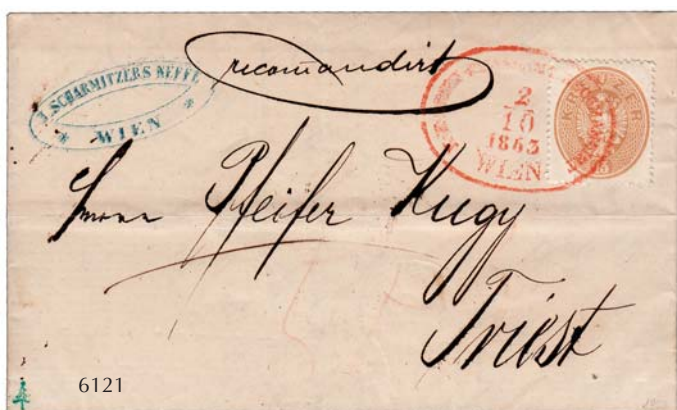 J. SCHARMITZERS NEFFE
WIEN
recomandirt
2
10
1863
WIEN
KREUZER
Herrn Pfeifer Kugy
Triest
6121